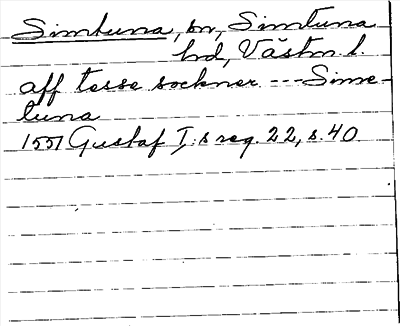 Simtuna, sn, Simtuna
hd, Västm l.
aff tesse sockner --- Sime-
tuna
1551 Gustaf I:s reg. 22, s. 40